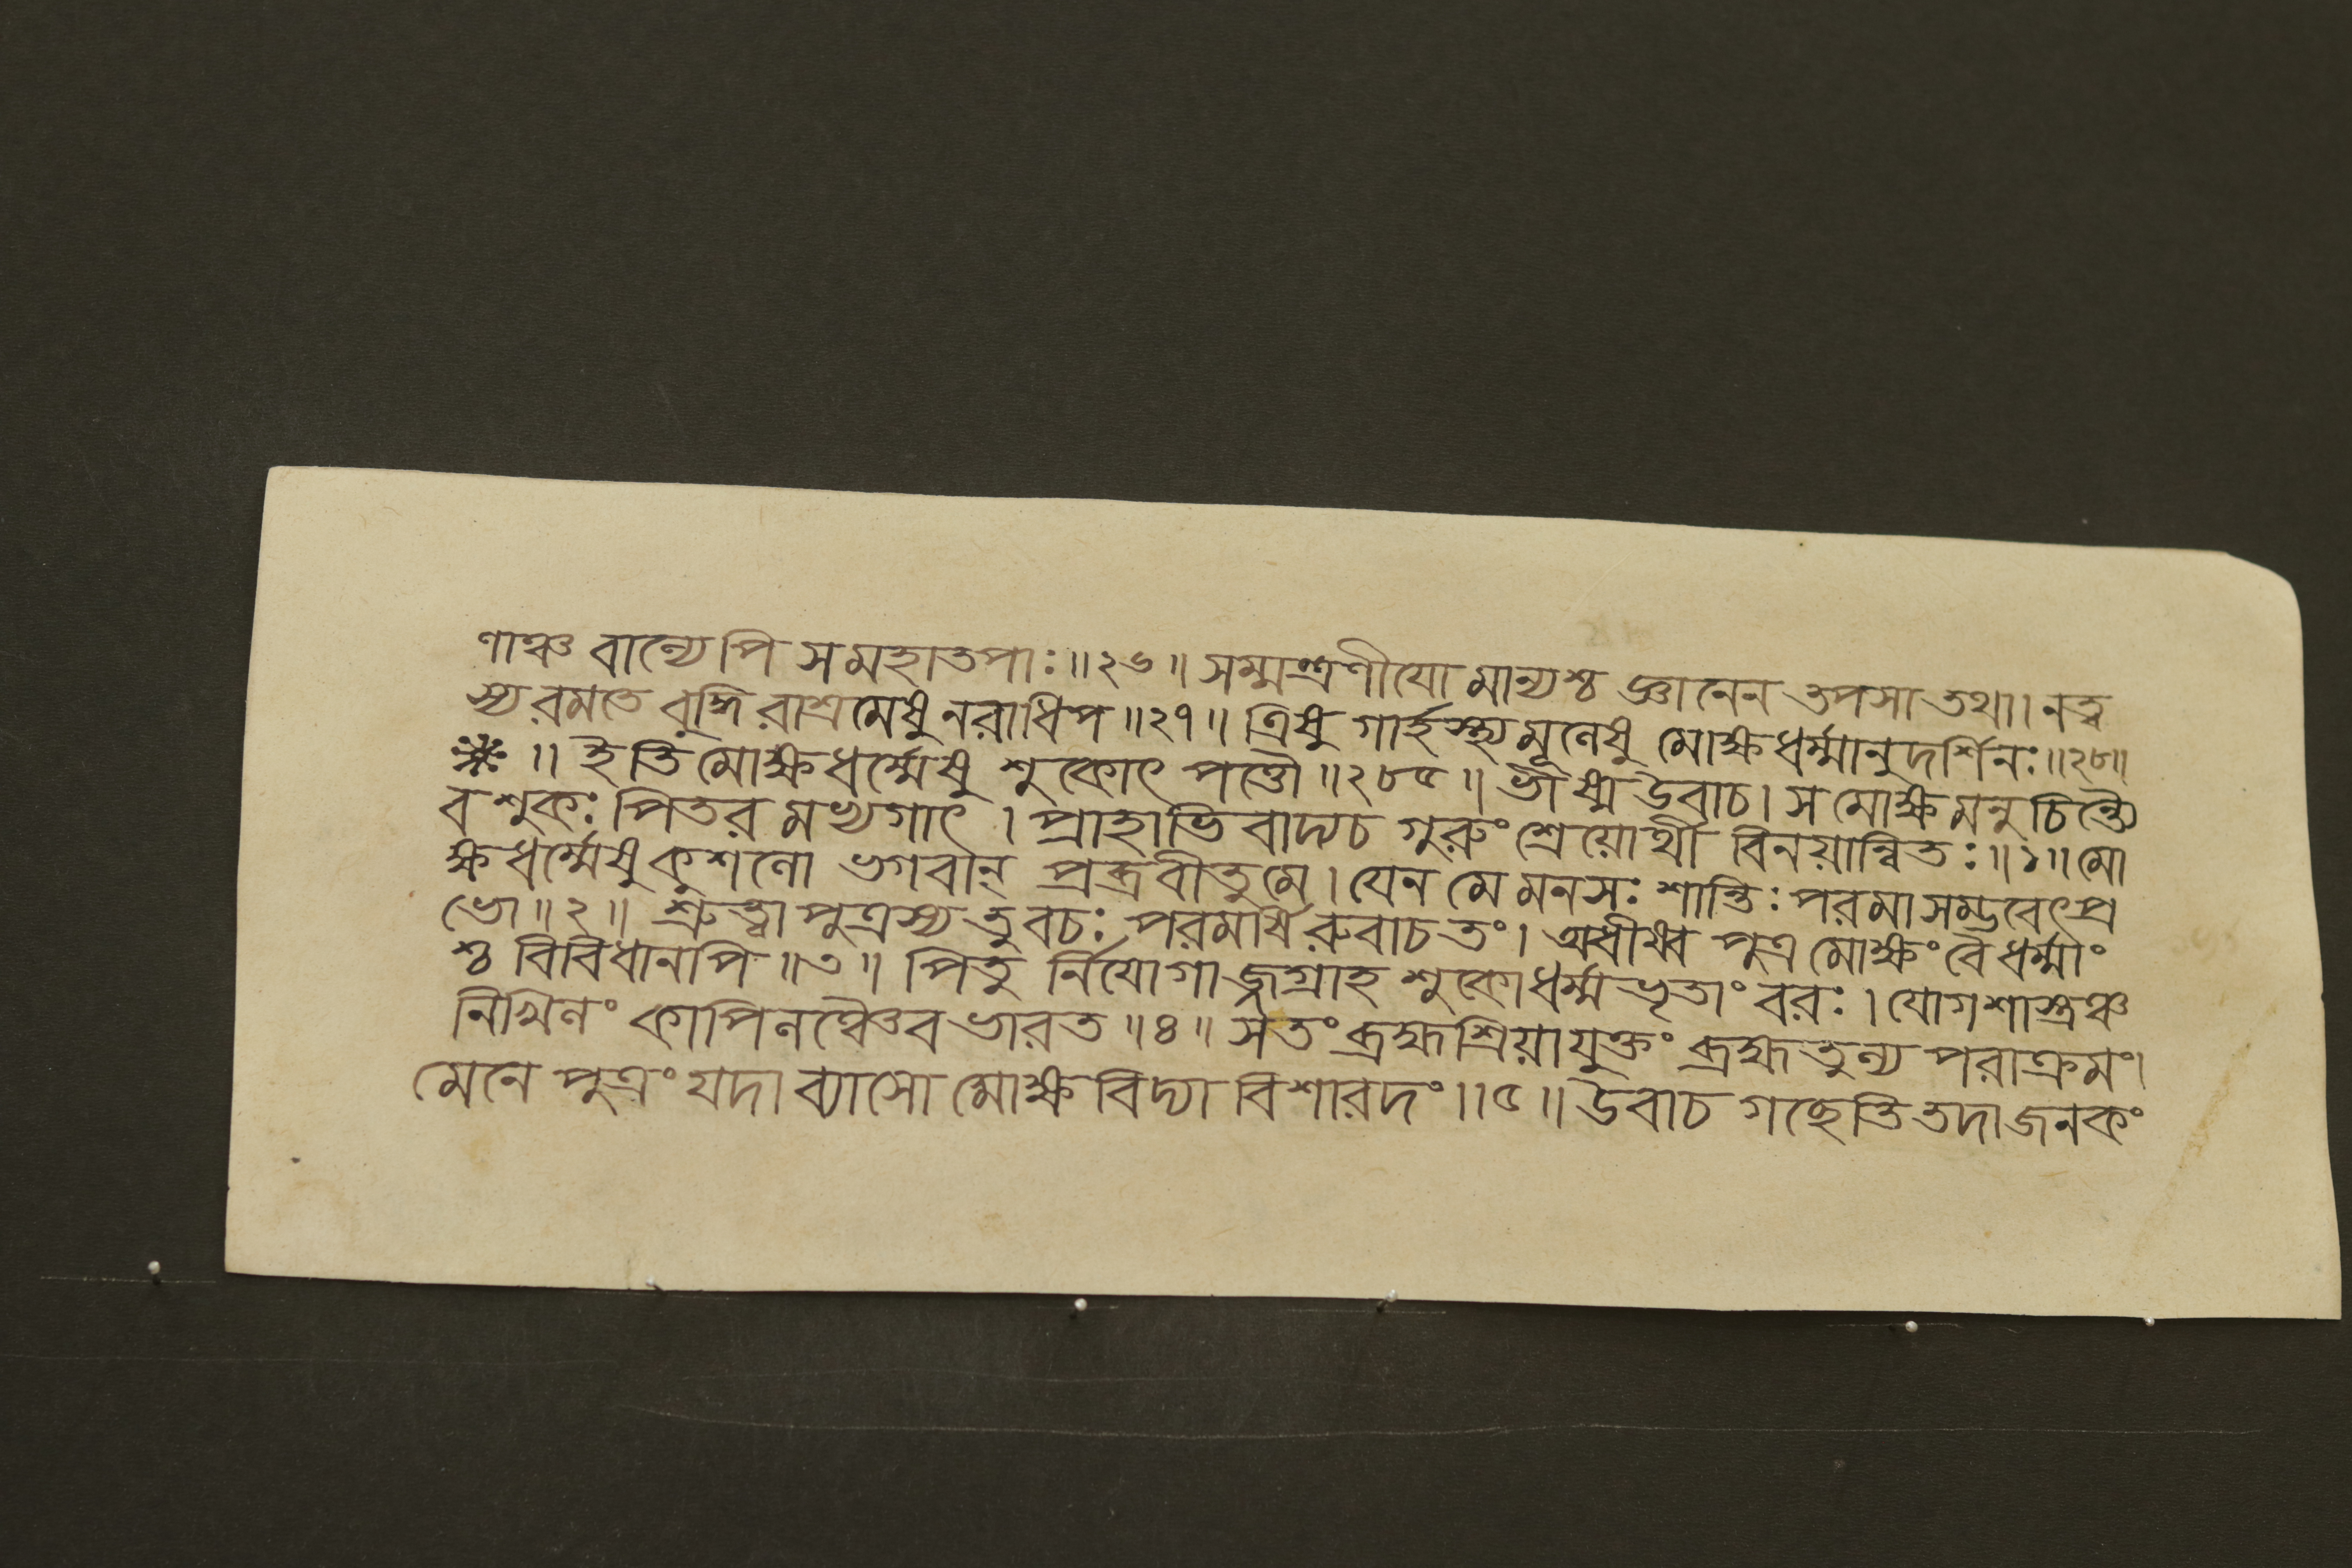 ণাঞ্চ বান্যেপি স মহাতপাঃ॥২৬॥ সম্মন্ত্রণীযো মান্যশ্চ জ্ঞানেন তপসা তথা। নত্ব
স্য রমতে বুদ্ধি রাশ্রমেষু নরাধিপ॥২৭॥ ত্রিষু গার্হস্থ্যমূণেষু মোক্ষধর্ম্মানুদর্শিনঃ॥২৮॥
॥ ইতি মোক্ষধর্ম্মেষু শুকোৎ পত্তৌ॥২৮৫॥ ভীষ্ম উবাচ। স মোক্ষমনুচিন্ত্যৈ
ব শুকঃ পিতর মভ্যগাৎ। প্রাহাভি বাদ্যচ গুরুং শ্রেয়োর্থী বিনয়ান্বিতঃ॥১॥ মো
ক্ষধর্ম্মেষু কুশণো ভগবান্ প্রব্রবীতুমে। যেন মে মনসঃ শান্তিঃ পরমা সম্ভবেৎপ্র
ভো॥২॥ শ্রুত্বা পুত্রস্য তু বচঃ পরমর্ষি রুবাচ তং। অধীষ্ব পুত্র মোক্ষং বৈ ধর্ম্মাং
শ্চ বিবিধানপি॥৩॥ পিতু র্নিযোগাজ্জগ্রাহ শুকো ধর্ম্মভৃতাং বরঃ। যোগশাস্ত্রঞ্চ
নিখিণং কাপিণঞ্চৈব ভারত॥৪॥ স তং ব্রহ্মশ্রিয়া যুক্তং ব্রহ্মতুণ্য পরাক্রমং।
মেনে পুত্রং যদা ব্যাসো মোক্ষ বিদ্যা বিশারদং॥৫॥ উবাচ গচ্ছেতি তদা জনকং